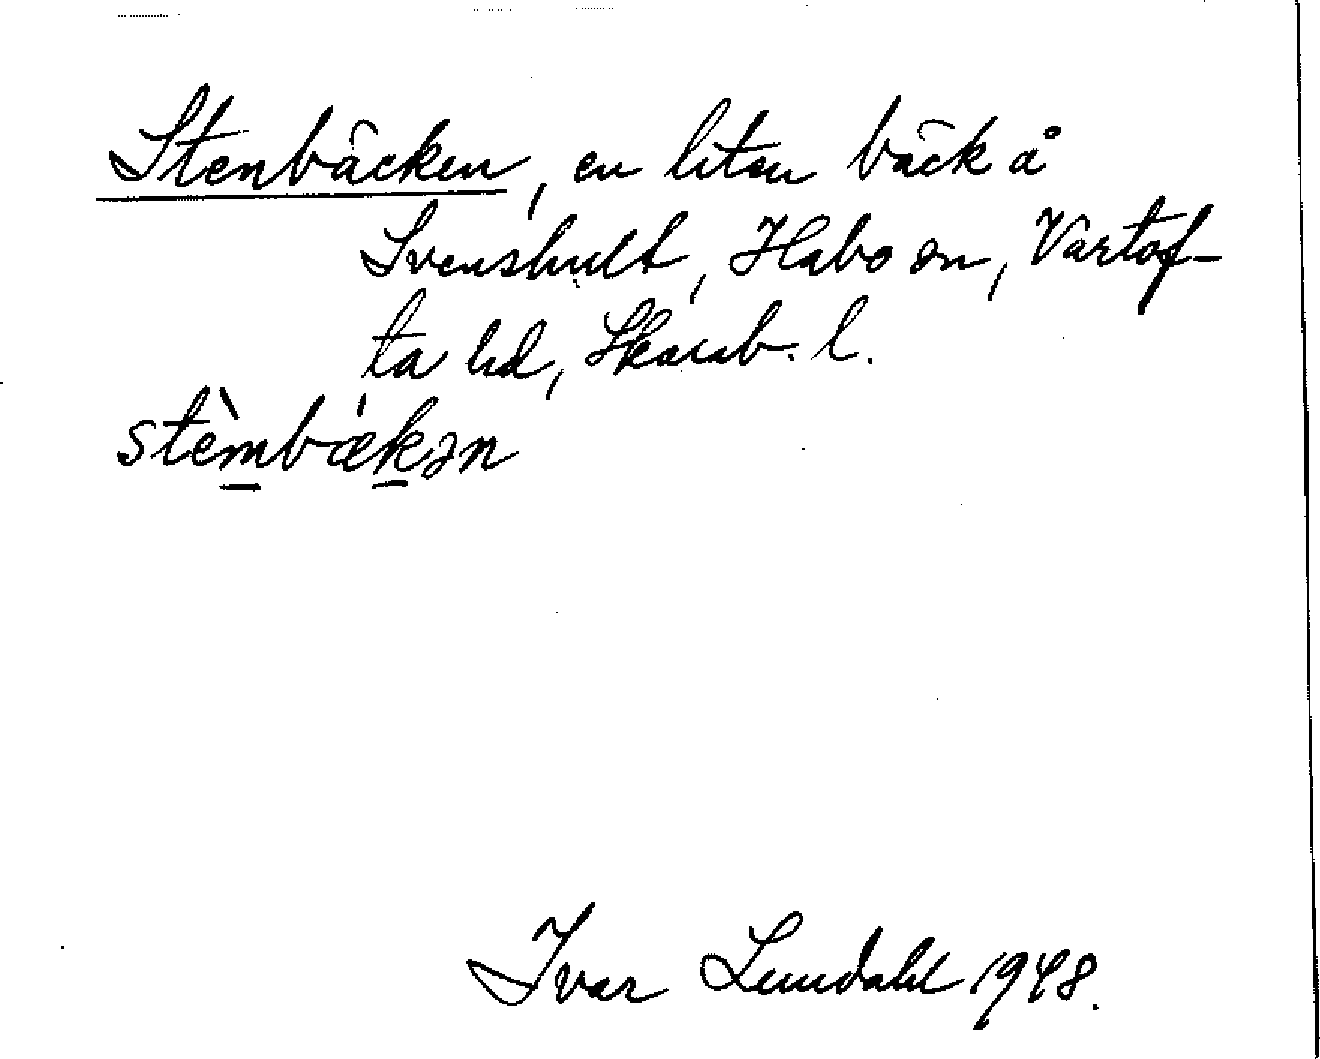 Stenbäcken, en liten bäck å
Svenshult, Habo sn, Vartof-
ta hd, Skarab. l.
stèmbækən
Ivar Lundahl 1948.